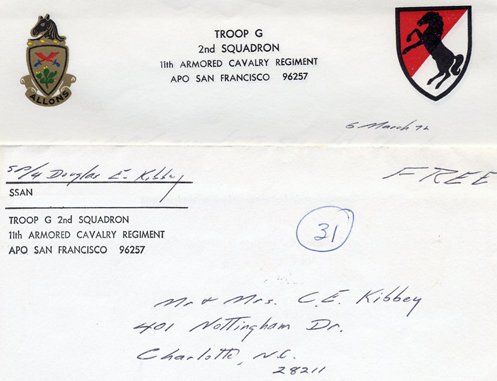 TROOP G
2nd SQUADRON
11th ARMORED CAVALRY REGIMENT
APO SAN FRANCISCO 96257
ALLONS
6 March 72
SP/4 Douglas E. Kibbey
FREE
SSAN
TROOP G 2nd SQUADRON
11th ARMORED CAVALRY REGIMENT
APO SAN FRANCISCO 96257
31
Mr & Mrs. C.E. Kibbey
401 Nottingham Dr.
Charlotte, N.C.
28211